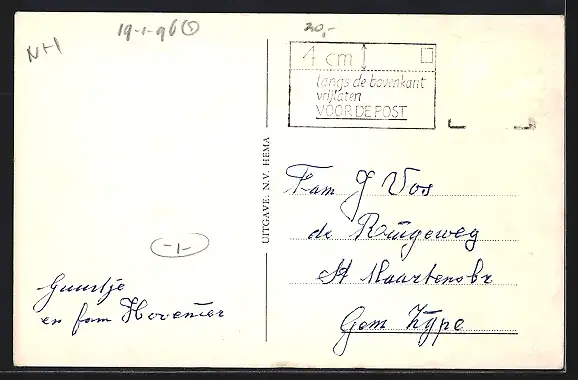 NH
19-1-96 (5)
20,-
4 cm
langs de bovenkant
vrijlaten
VOOR DE POST
UITGAVE: N.V. HEMA
Fam J Vos
de Ruigeweg
St Maartensbr
Gem Zijpe
-1-
Guurtje
en fam Hovenier